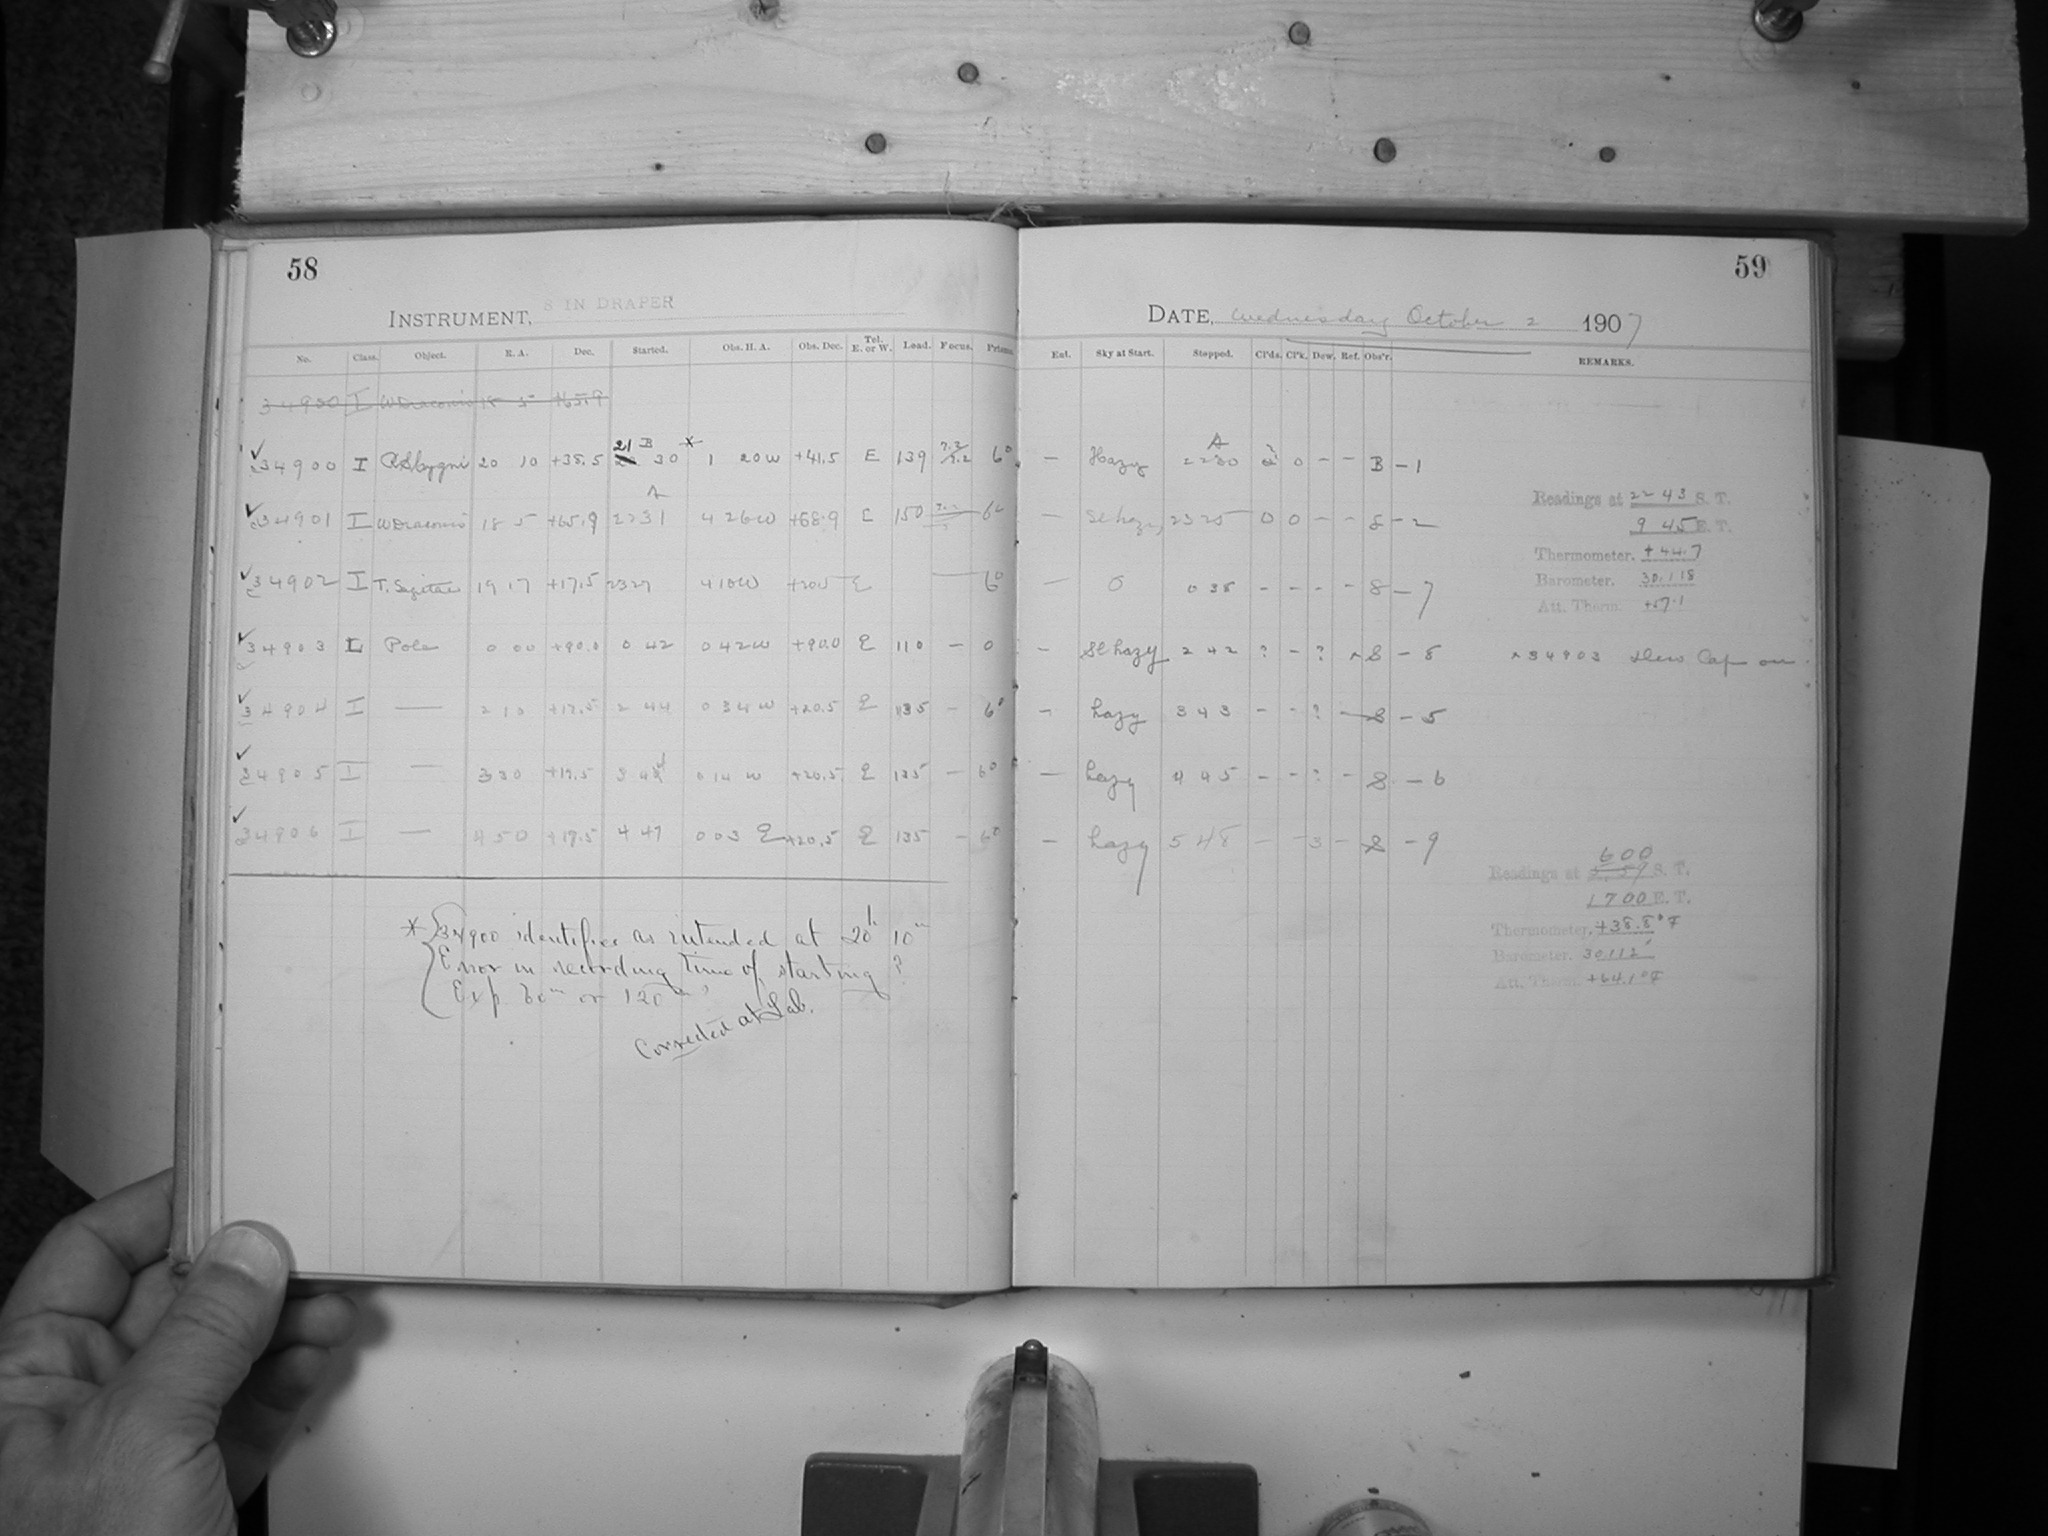 58
INSTRUMENT, 8 IN DRAPER
No. Class. Object. R. A. Dec. Started. Obs. H. A. Obs. Dec. Tel. E. or W. Lead. Focus. Prisms.
34900 I W Draconis 18 5 +65.9
21 B *
34900 I Cygni 20 10 +38.5 30 1 20 W +41.5 E 139 6°
A
34901 I W Draconis 18 5 +65.9 2231 4 26 W +68.9 E 150 6°
34902 I T. Sagittae 19 17 +17.5 2327 4 10 W +20.5 E 6°
34903 L Pole 0 00 +90.0 0 42 0 42 W +90.0 E 110 – 0
34904 I — 2 10 +17.5 2 44 0 34 W +20.5 E 135 – 6°
34905 I — 3 30 +17.5 3 44 0 14 W +20.5 E 135 – 6°
34906 I — 4 50 +17.5 4 47 0 03 E +20.5 E 135 – 6°
* 34900 identified as intended at 20h 10m
Error in recording time of starting ?
Exp. 60m or 120m?
Corrected at Lab.
59
DATE, Wednesday October 2 1907
Ent. Sky at Start. Stopped. Cl'ds. Cl'k. Dew. Ref. Obs'r. REMARKS.
A
– Hazy 2230 2 0 – – B – 1
Readings at 22 43 S. T.
– Sl hazy 2325 0 0 – – S – 2
9 45 E. T.
Thermometer. +44.7
– 0 0 38 – – – – S – 7
Barometer. 30.118
Att. Therm. +57.1
– Sl hazy 2 42 ? – ? × S – 8 × 34903 Dew Cap on.
– hazy 3 43 – – ? – S – 5
– hazy 4 45 – – ? – S – 6
– hazy 5 48 – – 3 – S – 9
600
Readings at 5.59 S. T.
1700 E. T.
Thermometer. +38.8°F
Barometer. 30.112
Att. Therm. +64.1°F